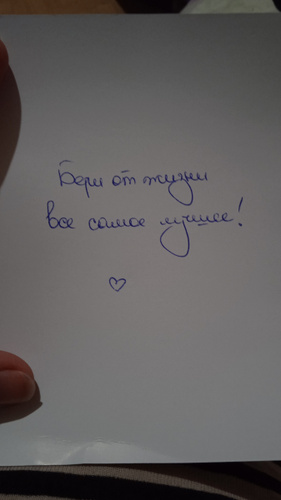 Бери от жизни
все самое лучшее!